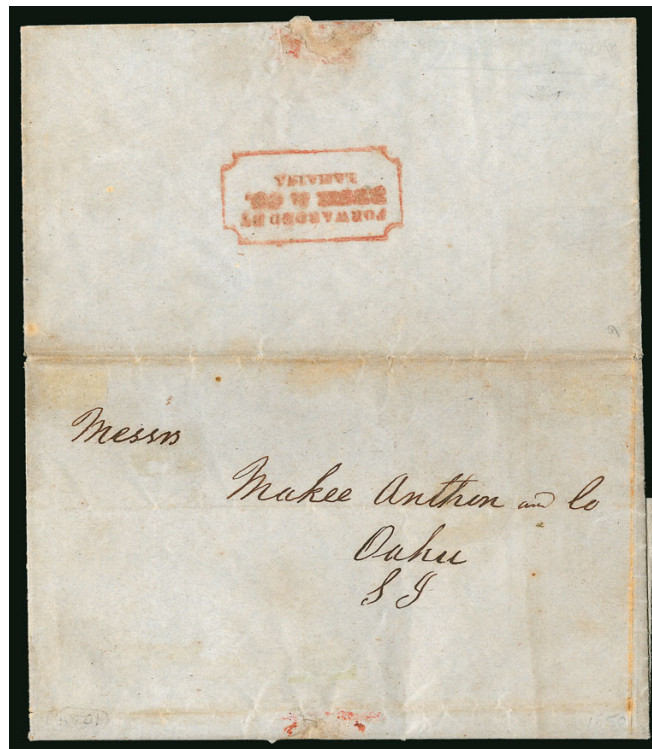 FORWARDED BY
& CO.
LAHAINA
Messrs
Makee Anthon and Co
Oahu
S I
1850